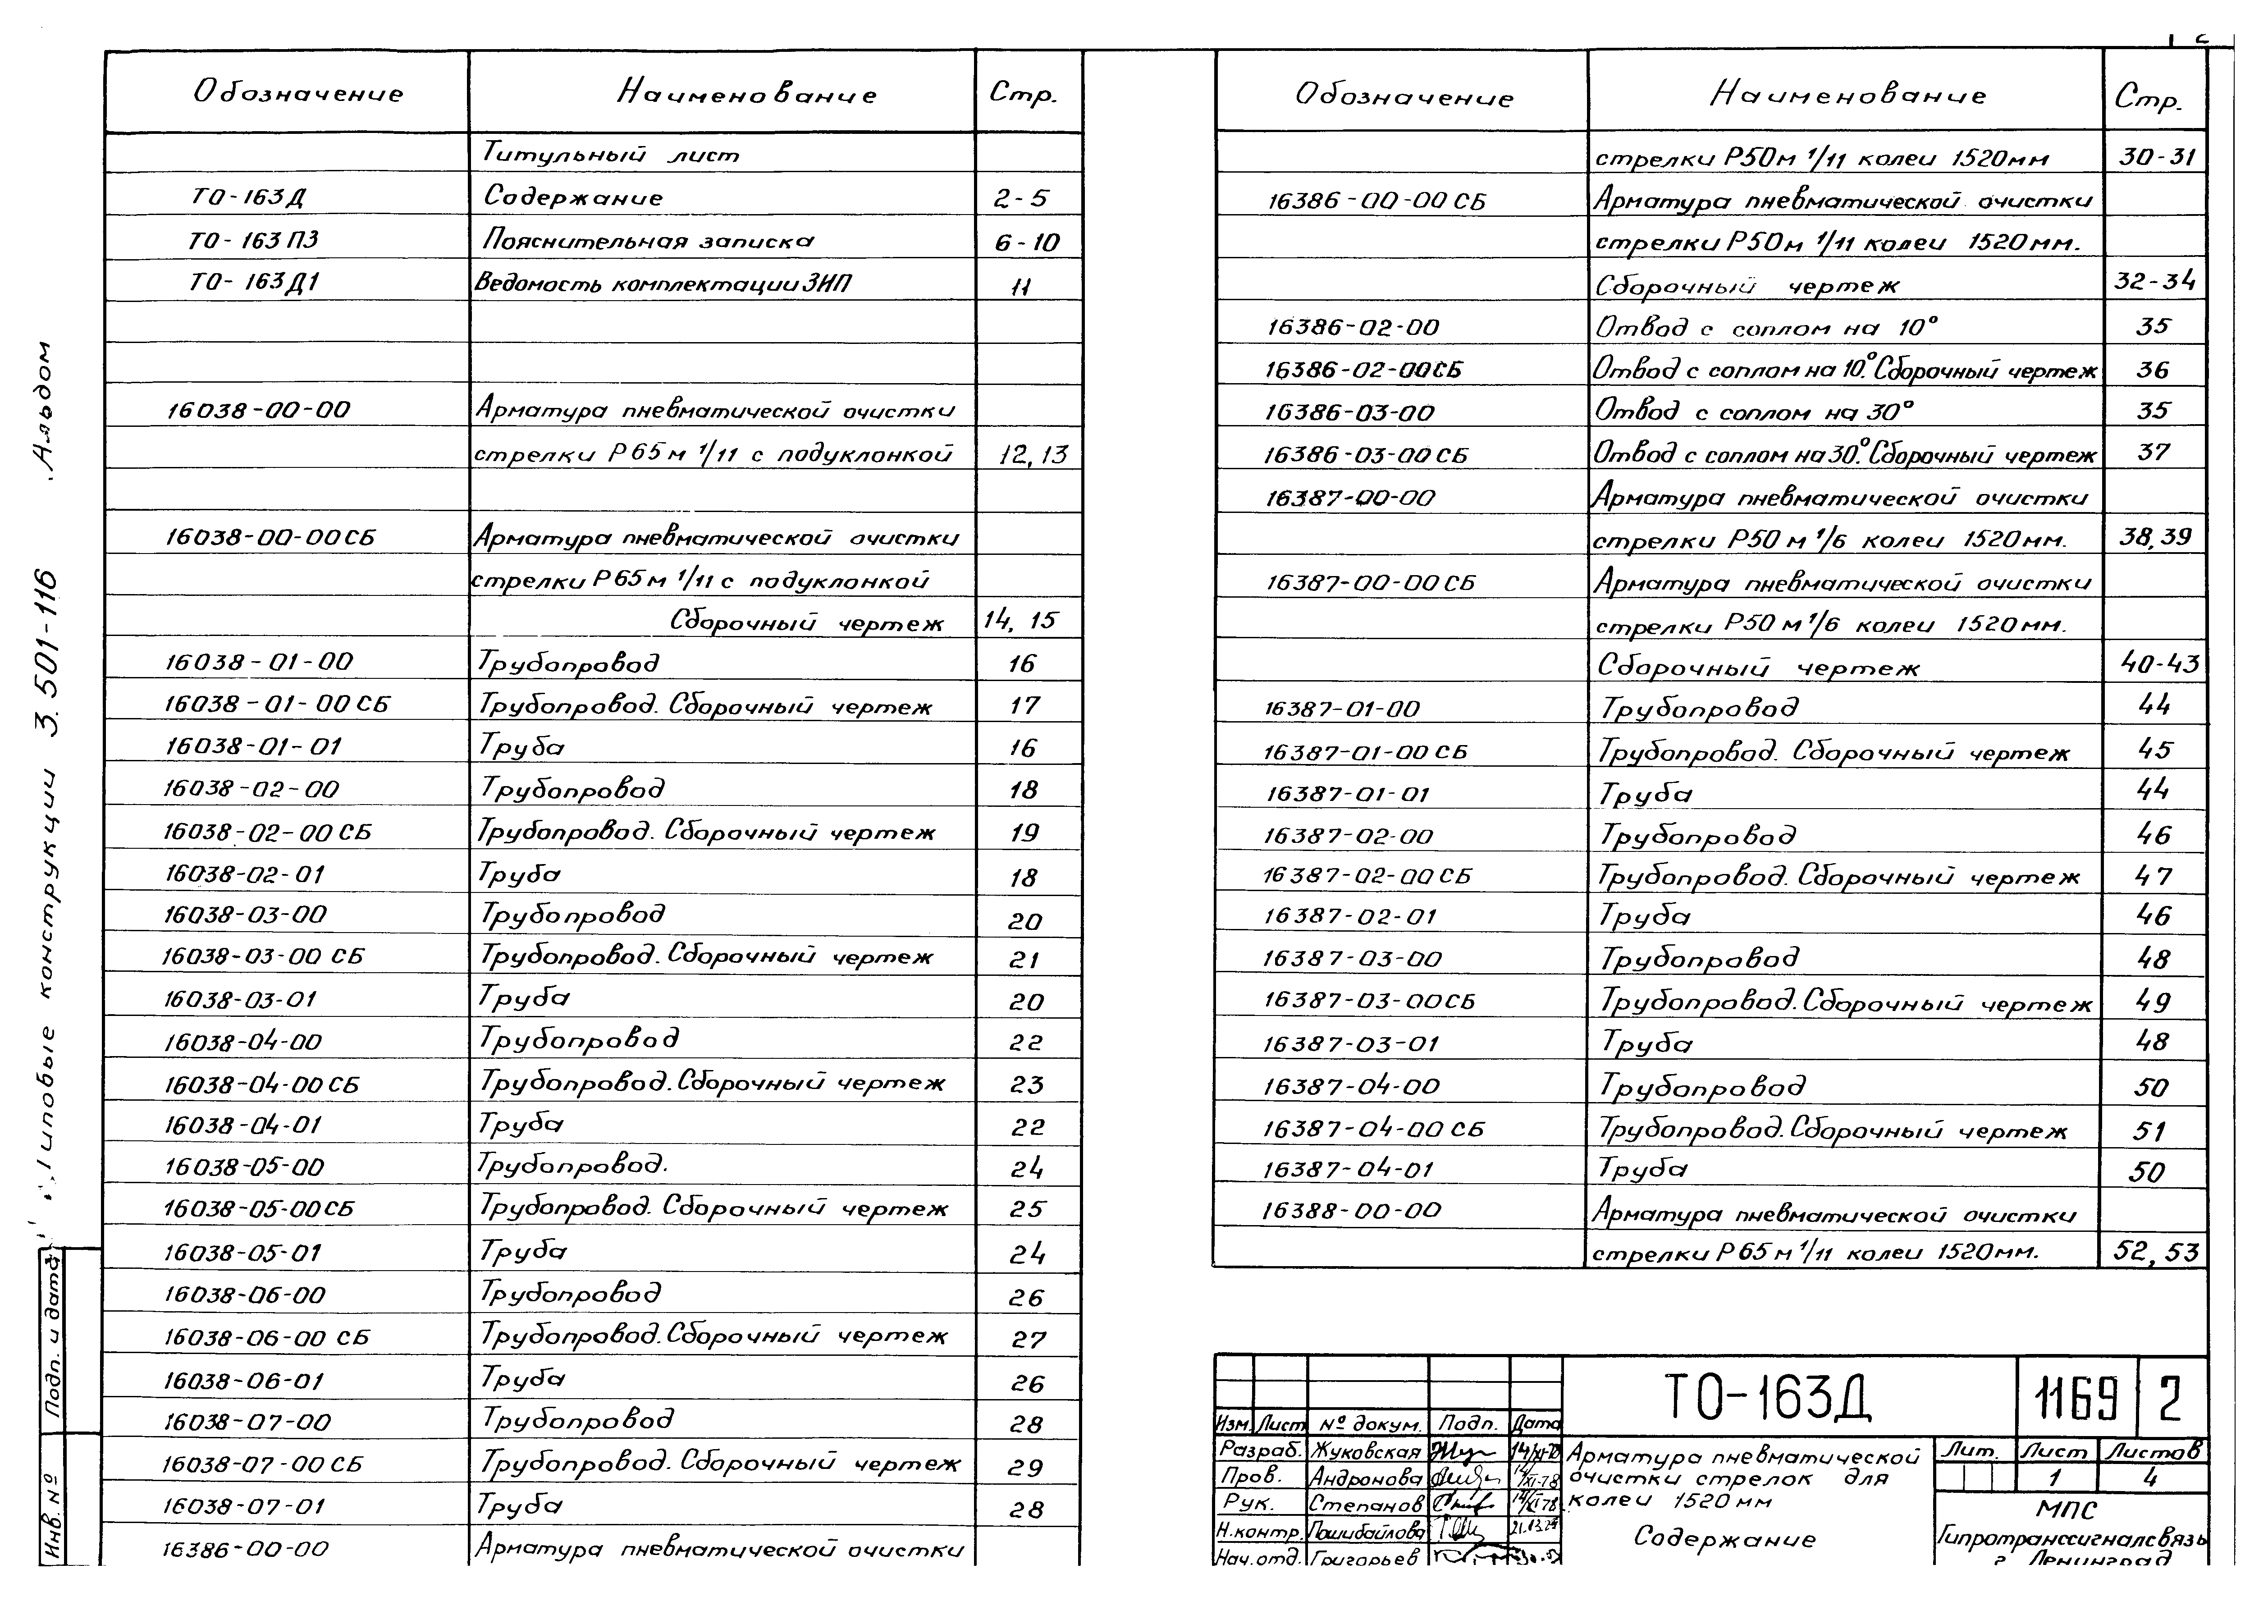 Обозначение Наименование Стр.
Титульный лист
ТО-163Д Содержание 2-5
ТО-163 ПЗ Пояснительная записка 6-10
ТО-163Д1 Ведомость комплектации ЗИП 11
16038-00-00 Арматура пневматической очистки
стрелки Р65м 1/11 с подуклонкой 12,13
16038-00-00СБ Арматура пневматической очистки
стрелки Р65м 1/11 с подуклонкой
Сборочный чертеж 14, 15
16038-01-00 Трубопровод 16
16038-01-00 СБ Трубопровод. Сборочный чертеж 17
16038-01-01 Труба 16
16038-02-00 Трубопровод 18
16038-02-00 СБ Трубопровод. Сборочный чертеж 19
16038-02-01 Труба 18
16038-03-00 Трубопровод 20
16038-03-00 СБ Трубопровод. Сборочный чертеж 21
16038-03-01 Труба 20
16038-04-00 Трубопровод 22
16038-04-00 СБ Трубопровод. Сборочный чертеж 23
16038-04-01 Труба 22
16038-05-00 Трубопровод. 24
16038-05-00СБ Трубопровод. Сборочный чертеж 25
16038-05-01 Труба 24
16038-06-00 Трубопровод 26
16038-06-00 СБ Трубопровод. Сборочный чертеж 27
16038-06-01 Труба 26
16038-07-00 Трубопровод 28
16038-07-00 СБ Трубопровод. Сборочный чертеж 29
16038-07-01 Труба 28
16386-00-00 Арматура пневматической очистки
Обозначение Наименование Стр.
стрелки Р50м 1/11 колеи 1520мм 30-31
16386-00-00 СБ Арматура пневматической очистки
стрелки Р50м 1/11 колеи 1520мм.
Сборочный чертеж 32-34
16386-02-00 Отвод с соплом на 10° 35
16386-02-00СБ Отвод с соплом на 10°. Сборочный чертеж 36
16386-03-00 Отвод с соплом на 30° 35
16386-03-00 СБ Отвод с соплом на 30°. Сборочный чертеж 37
16387-00-00 Арматура пневматической очистки
стрелки Р50 м 1/6 колеи 1520мм. 38,39
16387-00-00 СБ Арматура пневматической очистки
стрелки Р50 м 1/6 колеи 1520мм.
Сборочный чертеж 40-43
16387-01-00 Трубопровод 44
16387-01-00 СБ Трубопровод. Сборочный чертеж 45
16387-01-01 Труба 44
16387-02-00 Трубопровод 46
16387-02-00 СБ Трубопровод. Сборочный чертеж 47
16387-02-01 Труба 46
16387-03-00 Трубопровод 48
16387-03-00СБ Трубопровод. Сборочный чертеж 49
16387-03-01 Труба 48
16387-04-00 Трубопровод 50
16387-04-00 СБ Трубопровод. Сборочный чертеж 51
16387-04-01 Труба 50
16388-00-00 Арматура пневматической очистки
стрелки Р65м 1/11 колеи 1520мм. 52, 53
ТО-163Д 1169 2
Изм. Лист № докум. Подп. Дата
Разраб. Жуковская
Пров. Андронова
Рук. Степанов
Н.контр. Пошибайлова
Нач.отд. Григорьев
Арматура пневматической
очистки стрелок для
колеи 1520 мм
Содержание
Лит. Лист Листов
1 4
МПС
Гипротранссигналсвязь
г. Ленинград
иповые конструкции 3.501-116 Альбом
Подп. и дата
Инв. №